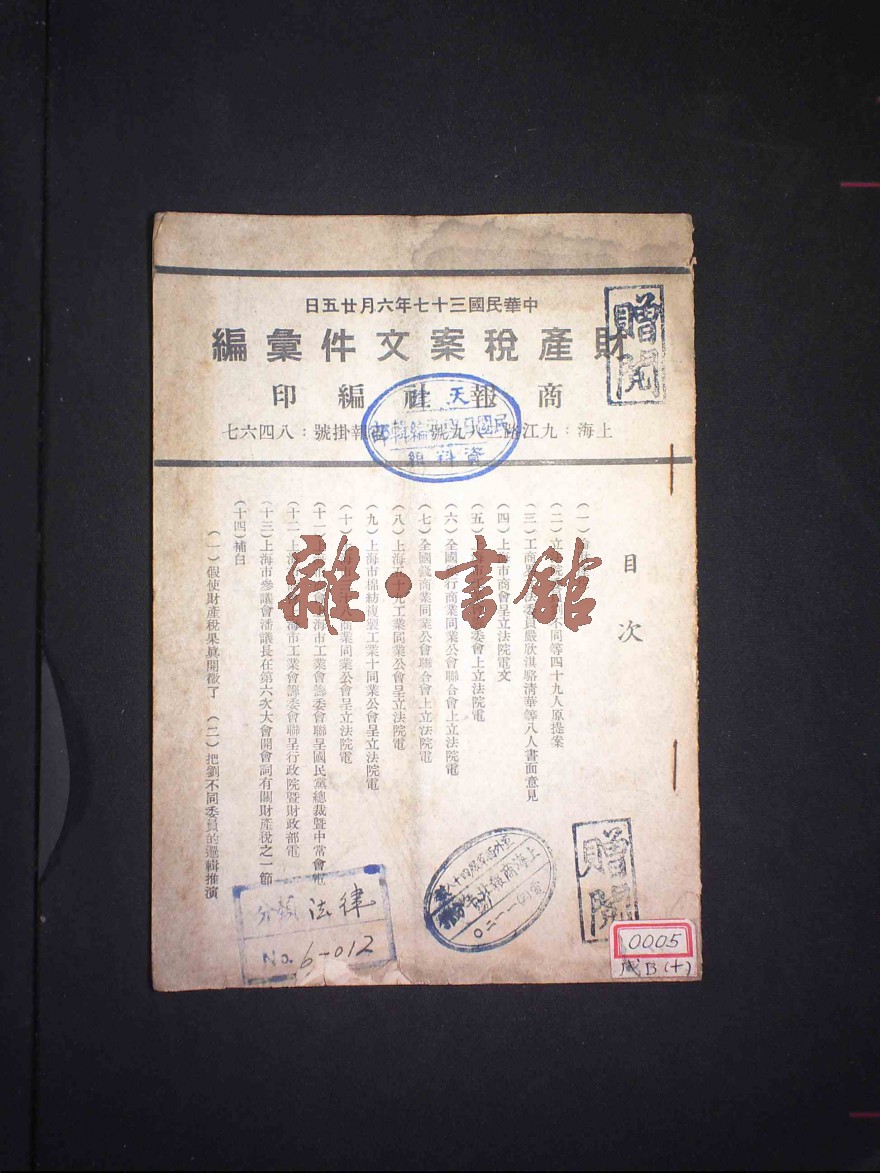 中華民國三十七年六月廿五日
財產稅案文件彙編
商報社編印
上海：九江路 八九號 報掛號：八四六七
目次
（一）
（二）立 不同等四十九人原提案
（三）工商 委員嚴欣淇駱清華等八人書面意見
（四）上海市商會呈立法院電文
（五） 委會上立法院電
（六）全國 行商業同業公會聯合會上立法院電
（七）全國錢商業同業公會聯合會上立法院電
（八）上海五十九工業同業公會呈立法院電
（九）上海市棉紡複製工業十同業公會呈立法院電
（十） 商業同業公會呈立法院電
（十一） 海市工業會籌委會聯呈國民黨總裁暨中常會電
（十二）上海 海市工業會籌委會聯呈行政院暨財政部電
（十三）上海市參議會潘議長在第六次大會開會詞有關財產稅之一節
（十四）補白
（一）假使財產稅果真開徵了 （二）把劉不同委員的邏輯推演
贈閱
天
民國日 編輯部
資料組
雜·書館
贈閱
上海商報
分類 法律
No. 6-012
0005
B(十)